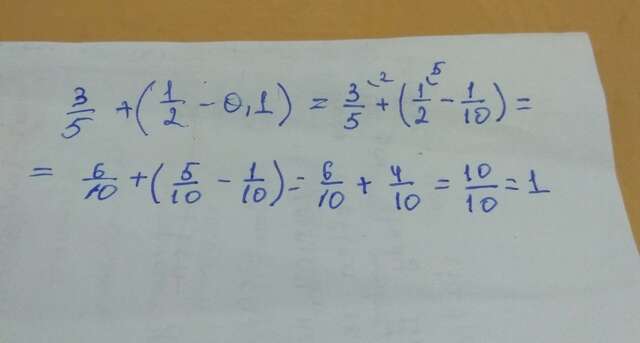 3/5 + (1/2 - 0,1) = 3/5 ² + (1/2 ⁵ - 1/10) =
= 6/10 + (5/10 - 1/10) = 6/10 + 4/10 = 10/10 = 1